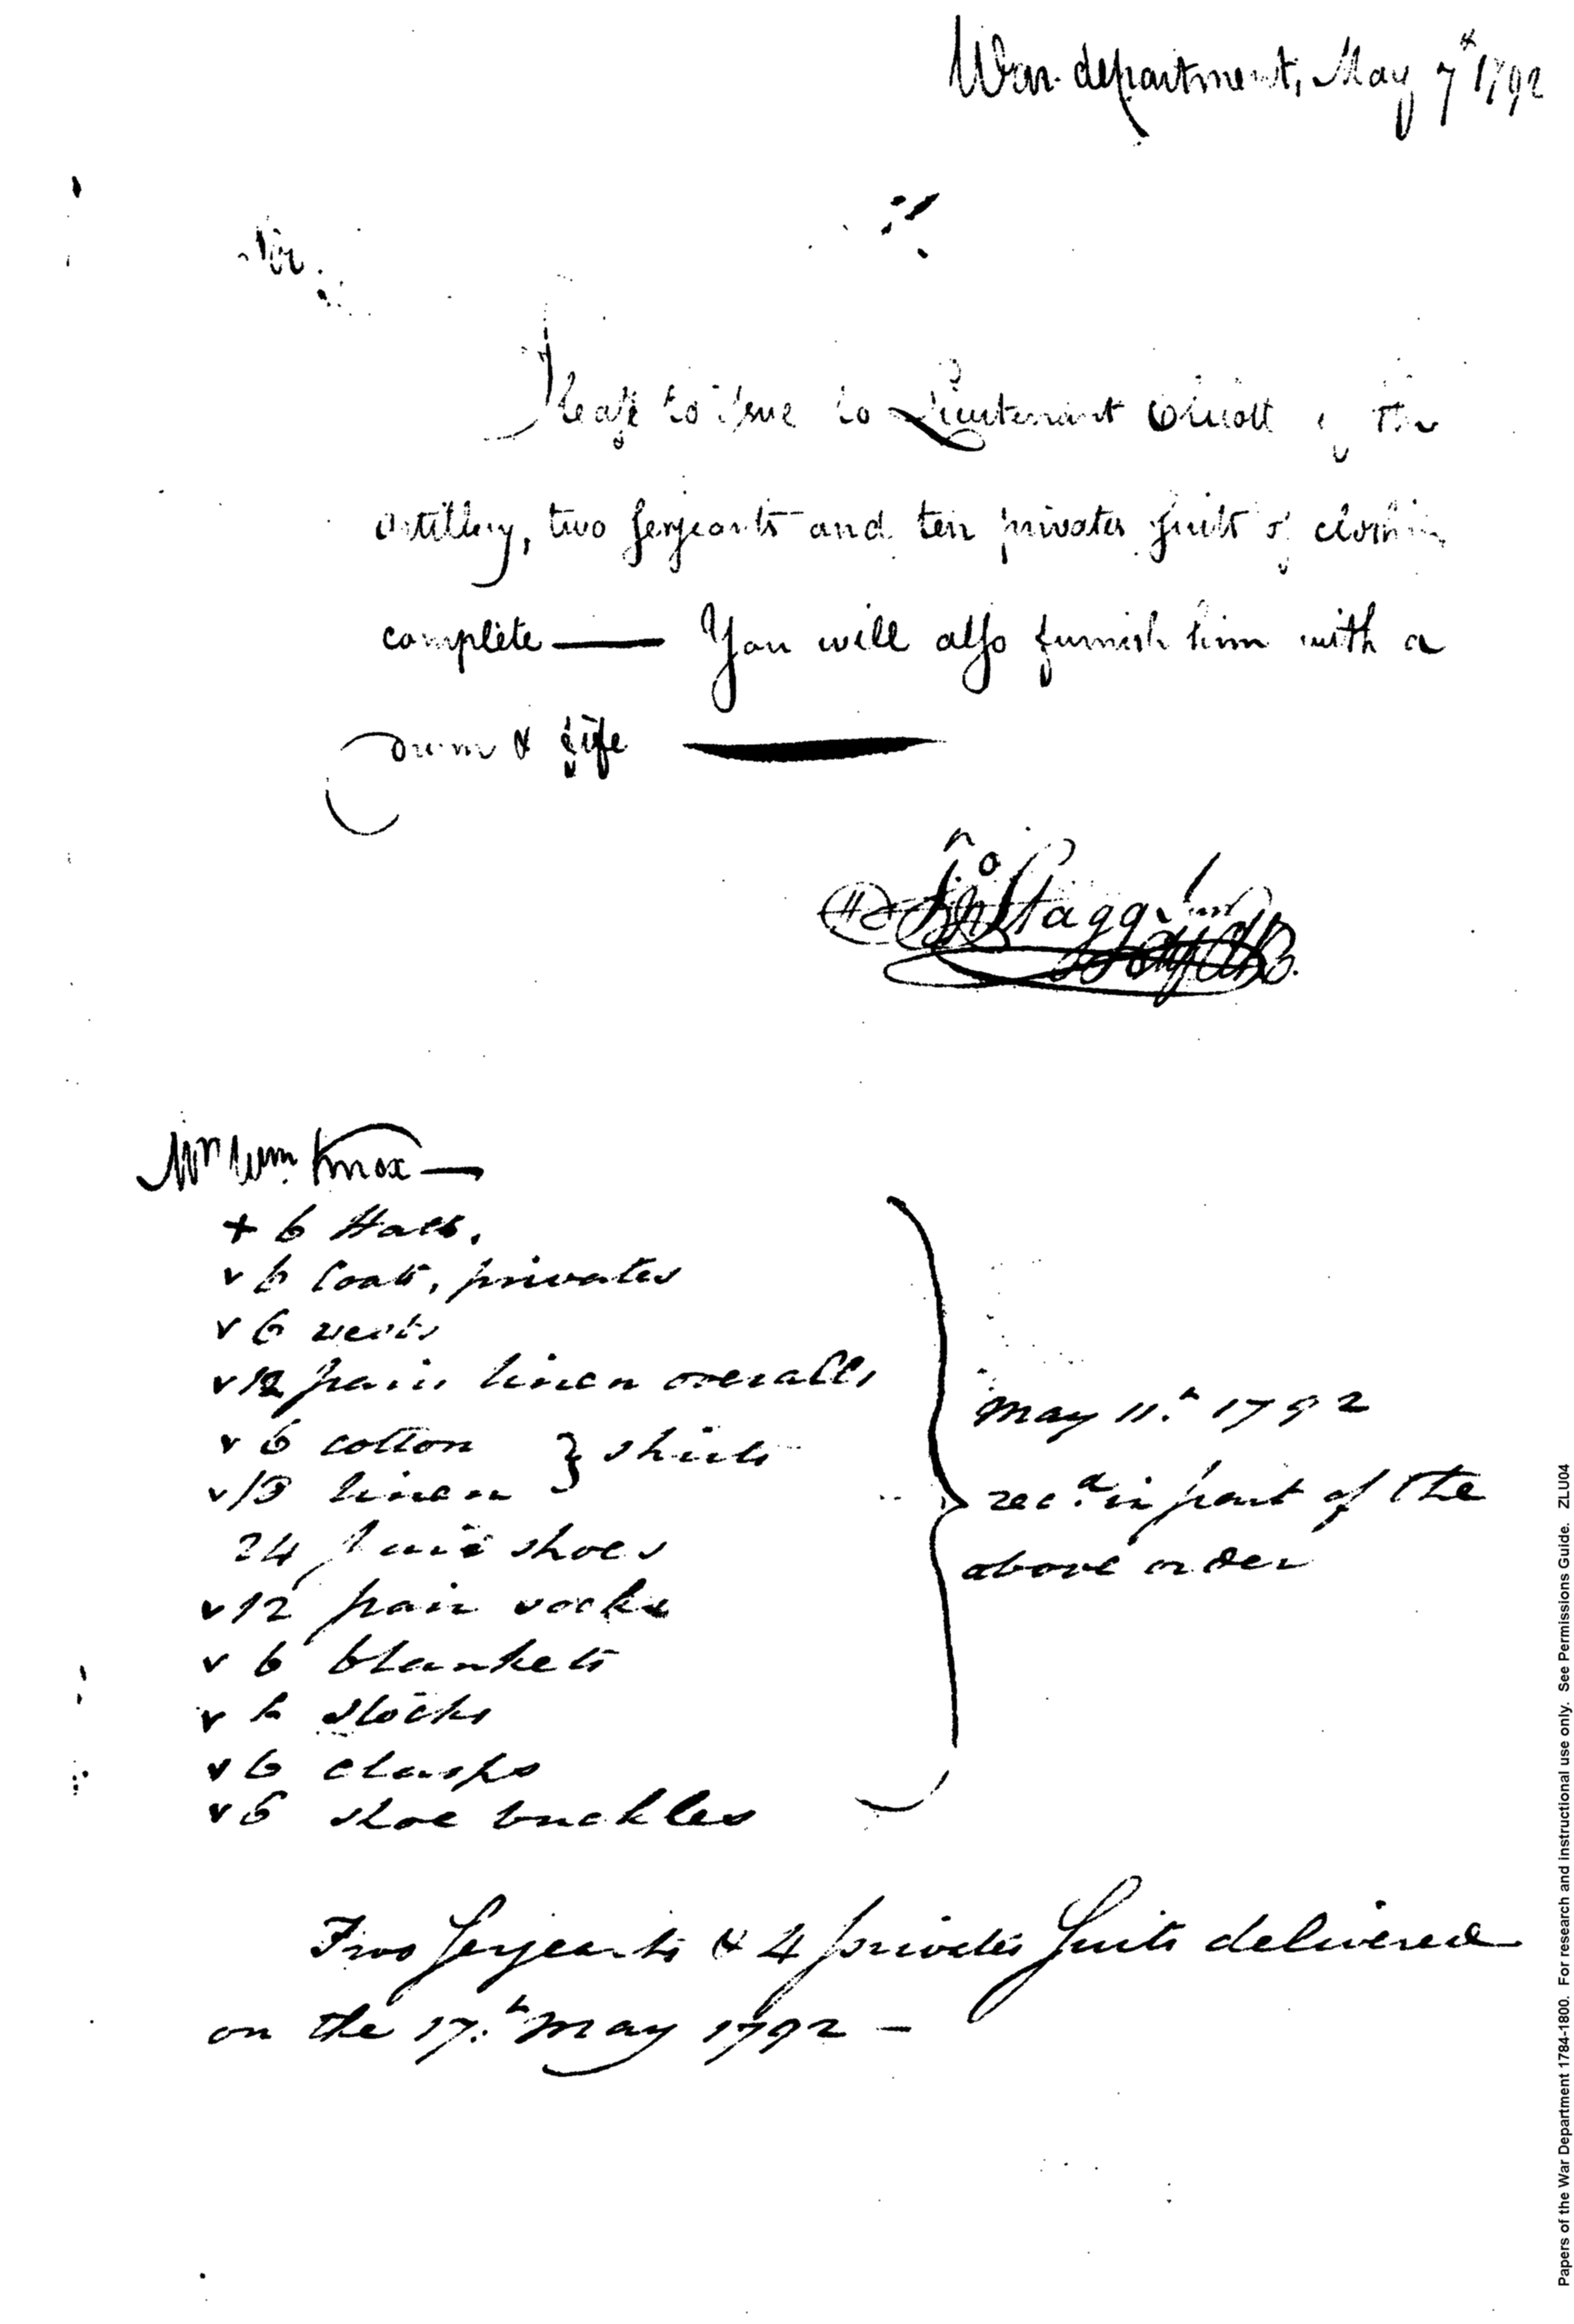 War department, May 7th 1792
Sir.
Please to issue to Lieutenant Elliott of the
artillery, two serjeants and ten privates suits of clothing
complete — You will also furnish him with a
Drum & fife —
Jno Stagg Junr
Mr Wm. Knox —
+ 6 Hats.
v 6 Coats, privates
v 6 vests
v 12 pair linen overalls
v 6 cotton } shirts
v 18 linen
24 pair shoes
v 12 pair socks
v 6 blankets
v 6 stocks
v 6 clasps
v 6 shoe buckles
May 11.th 1792
recd. in part of the
above order
Two Serjeants & 4 privates Suits delivered
on the 17.th May 1792 —
Papers of the War Department 1784-1800. For research and instructional use only. See Permissions Guide. ZLU04